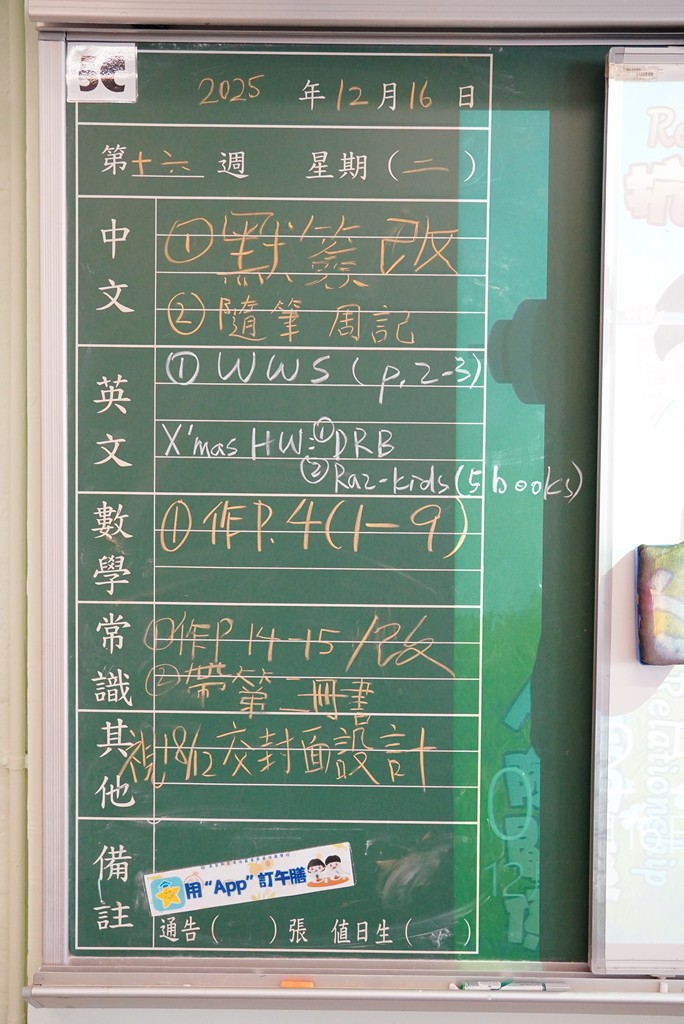 5C
2025 年 12 月 16 日
第 十六 週 星期（二）
中文
① 默簽改
② 隨筆 周記
英文
① WWS (p.2-3)
X'mas HW: ① DRB
② Raz-kids (5 books)
數學
① 作P.4(1-9)
常識
① 作P 14-15/改
② 帶第二冊書
其他
視 18/12 交封面設計
備註
用“App”訂午膳
通告（ ）張 值日生（ ）
Relationship